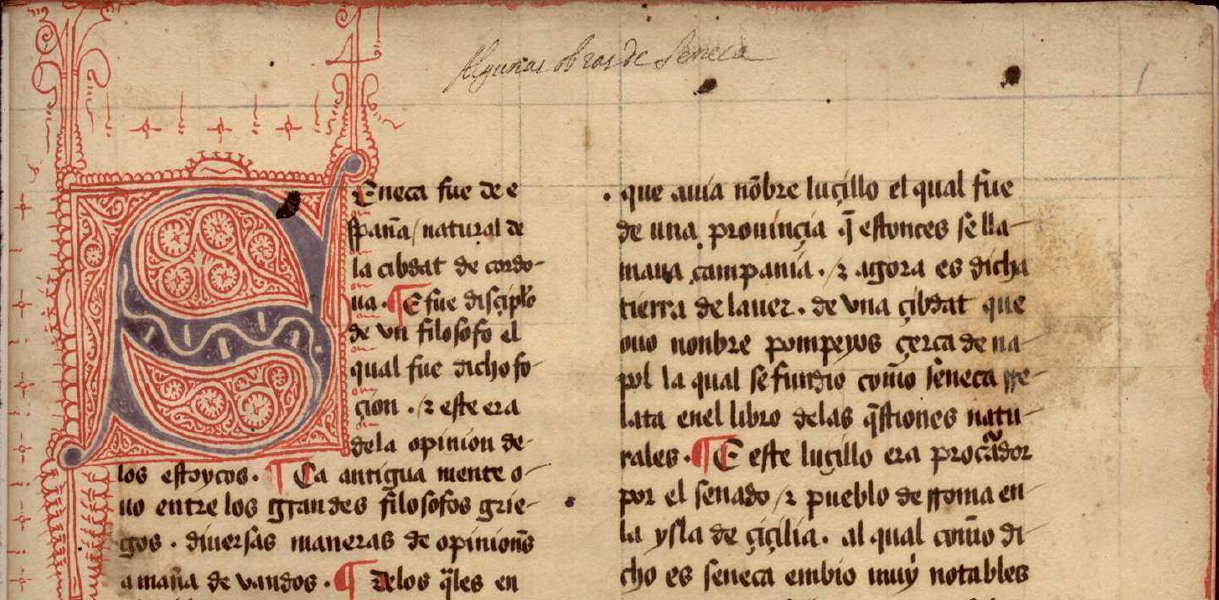 Algunas obras de Seneca
1
Seneca fue de e
spaña / natural de
la cibdat de cordo-
ua. ¶ E fue disciplo
de vn filosofo el
qual fue dicho fo-
çion. ⁊ este era
dela opinion de-
los estoycos. ¶ Ca antigua mente o-
uo entre los grandes filosofos grie-
gos. diuersas maneras de opiniones
a maña de vandos. ¶ Delos q̃les en
que auia nõbre luçillo el qual fue
de una prouinçia q̃ estonces se lla-
maua campania. ⁊ agora es dicha
tierra de lauer. de vna çibdat que
ouo nonbre pompeyos çerca de na-
pol la qual se fundio com̃o seneca rre-
lata enel libro delas q̃stiones natu-
rales. ¶ E este luçillo era procãdor
por el senado ⁊ pueblo de rroma en-
la ysla de çiçilia. al qual com̃o di-
cho es seneca embio muy notables